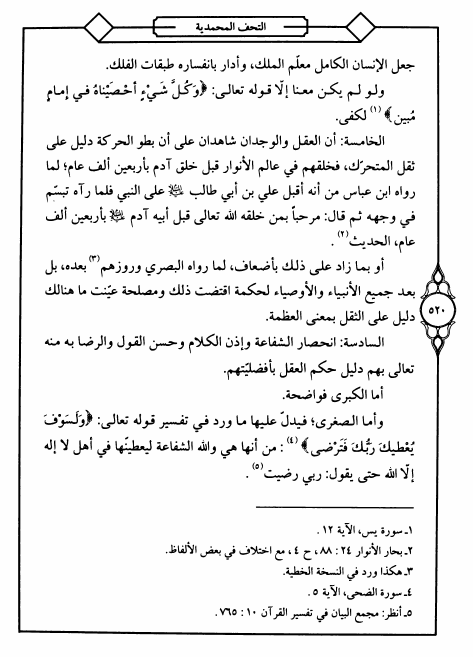 التحف المحمدية
جعل الإنسان الكامل معلّم الملك، وأدار بانفساره طبقات الفلك.
ولو لم يكن معنا إلّا قوله تعالى: ﴿وَكُلَّ شَيْءٍ أحْصَيْنَاهُ فِي إمَامٍ
مُبين﴾ (١) لكفى.
الخامسة: أن العقل والوجدان شاهدان على أن بطو الحركة دليل على
ثقل المتحرّك، فخلقهم في عالم الأنوار قبل خلق آدم بأربعين ألف عام؛ لما
رواه ابن عباس من أنه أقبل علي بن أبي طالب ﷺ على النبي فلما رآه تبسّم
في وجهه ثم قال: مرحباً بمن خلقه الله تعالى قبل أبيه آدم ﷺ بأربعين ألف
عام، الحديث(٢) .
أو بما زاد على ذلك بأضعاف، لما رواه البصري وروزهم(٣) بعده، بل
بعد جميع الأنبياء والأوصياء لحكمة اقتضت ذلك ومصلحة عيّنت ما هنالك
دليل على الثقل بمعنى العظمة.
٥٢٠
السادسة: انحصار الشفاعة وإذن الكلام وحسن القول والرضا به منه
تعالى بهم دليل حكم العقل بأفضليّتهم.
أما الكبرى فواضحة.
وأما الصغرى؛ فيدلّ عليها ما ورد في تفسير قوله تعالى: ﴿وَلَسَوْفَ
يُعْطيكَ رَبُّكَ فَتَرْضى﴾ (٤) : من أنها هي والله الشفاعة ليعطيّنها في أهل لا إله
إلّا الله حتى يقول: ربي رضيت(٥) .
١ـ سورة يس، الآية ١٢ .
٢ـ بحار الأنوار ٢٤ : ٨٨ ، ح ٤ ، مع اختلاف في بعض الألفاظ.
٣ـ هكذا ورد في النسخة الخطية.
٤ـ سورة الضحى، الآية ٥ .
٥ـ أنظر: مجمع البيان في تفسير القرآن ١٠ : ٧٦٥ .